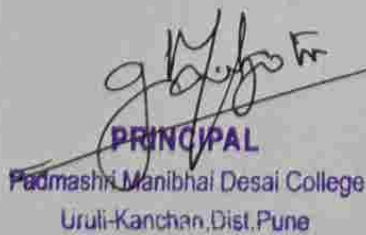 PRINCIPAL
Padmashri Manibhai Desai College
Uruli-Kanchan,Dist.Pune